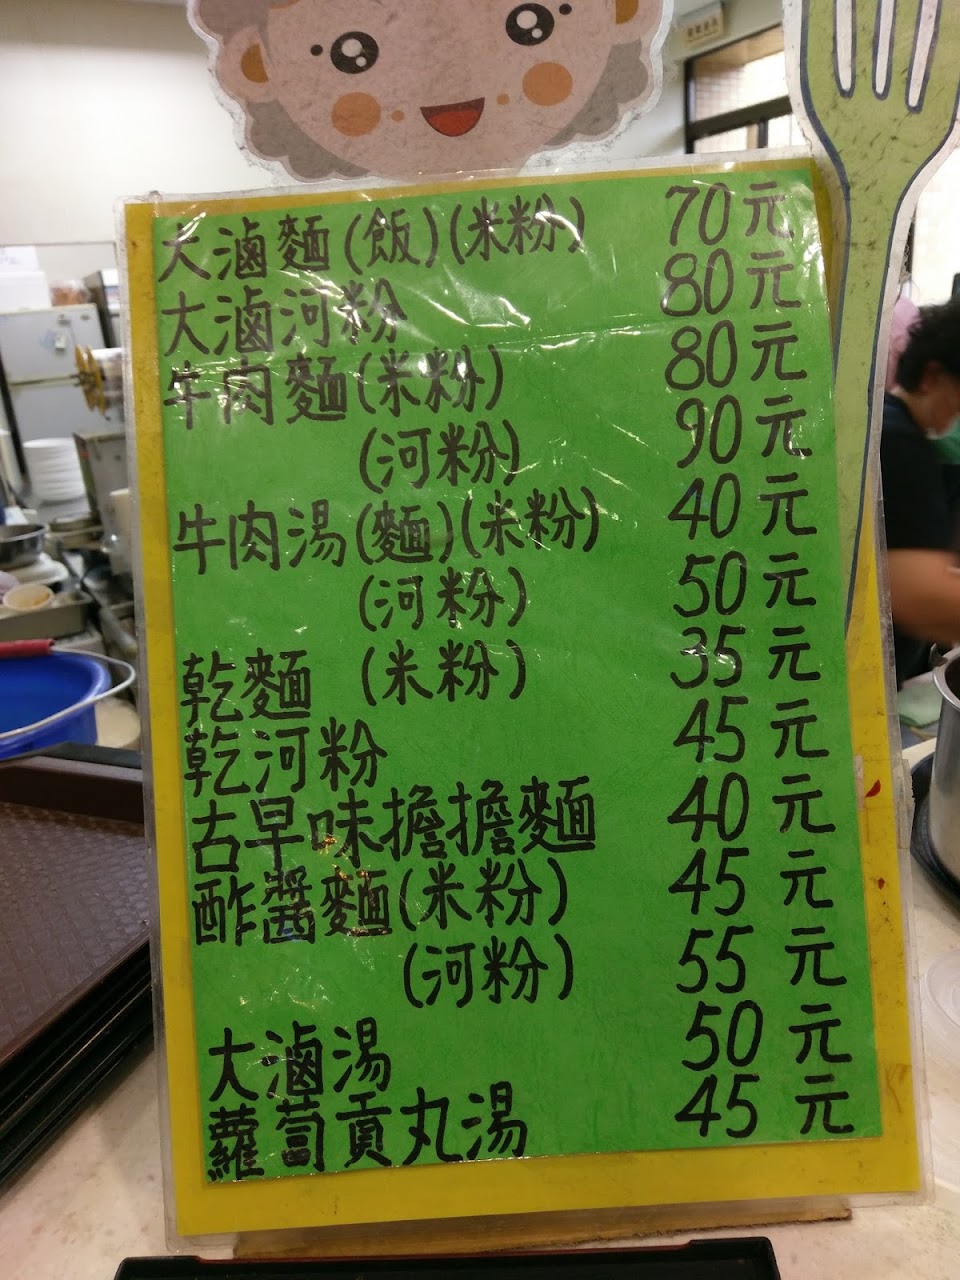 大滷麵(飯)(米粉) 70元
大滷河粉 80元
牛肉麵(米粉) 80元
(河粉) 90元
牛肉湯(麵)(米粉) 40元
(河粉) 50元
乾麵 (米粉) 35元
乾河粉 45元
古早味擔擔麵 40元
酢醬麵(米粉) 45元
(河粉) 55元
大滷湯 50元
蘿蔔貢丸湯 45元